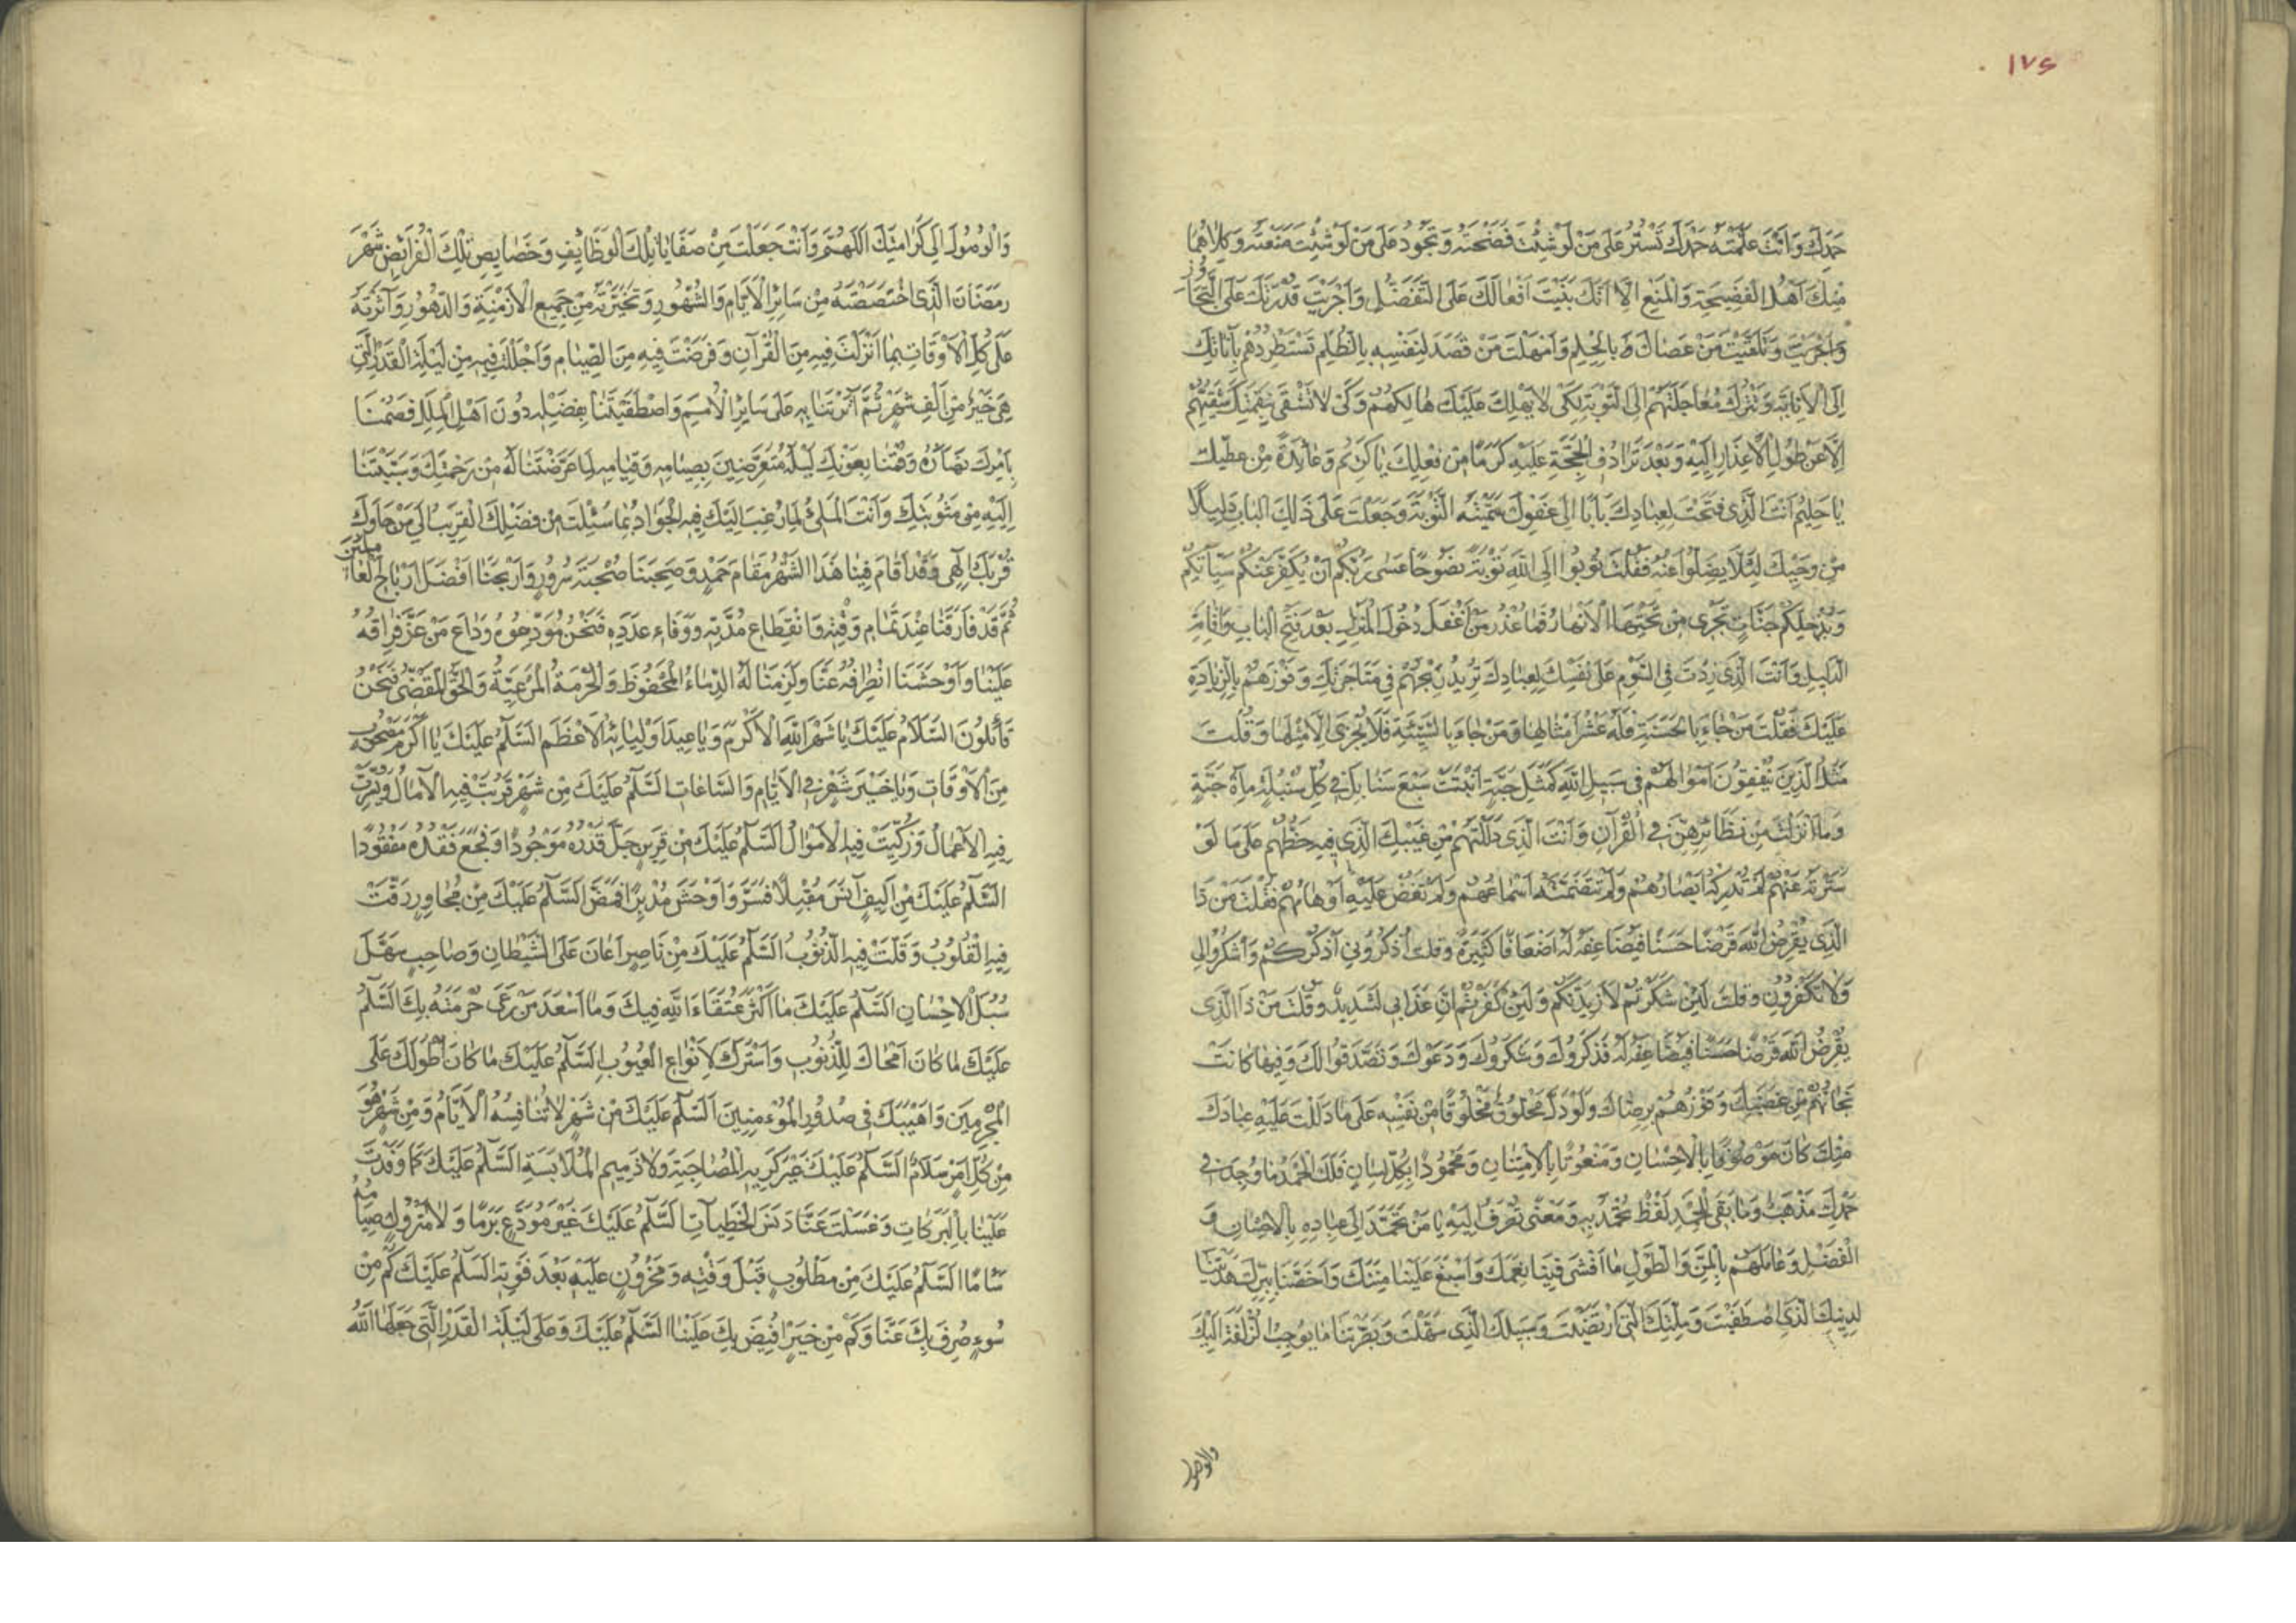 ١٧٤
حَمِدَكَ وَاَنْتَ عَلَّمْتَهُ حَمْدَكَ تَسْتُرُ عَلَى مَنْ لَوْ شِئْتَ فَضَحْتَهُ وَتَجُودُ عَلَى مَنْ لَوْ شِئْتَ مَنَعْتَهُ وَكِلَاهُمَا
مِنْكَ اَهْلُ الْفَضِيحَةِ وَالْمَنْعِ اِلَّا اَنَّكَ بَنَيْتَ اَفْعَالَكَ عَلَى التَّفَضُّلِ وَاَجْرَيْتَ قُدْرَتَكَ عَلَى التَّجَاوُزِ
وَتَلَقَّيْتَ مَنْ عَصَاكَ بِالْحِلْمِ وَاَمْهَلْتَ مَنْ قَصَدَ لِنَفْسِهِ بِالظُّلْمِ تَسْتَطْرِدُهُمْ بِاَنَاتِكَ
اِلَى الْاِنَابَةِ وَتَتْرُكُ مُعَاجَلَتَهُمْ اِلَى التَّوْبَةِ لِكَىْ لَا يَهْلِكَ عَلَيْكَ هَالِكُهُمْ وَكَىْ لَا تَشْقَى بِنِقْمَتِكَ شَقِيُّهُمْ
اِلَّا عَنْ طُولِ الْاِعْذَارِ اِلَيْهِ وَبَعْدَ تَرَادُفِ الْحُجَّةِ عَلَيْهِ كَرَمًا مِنْ فِعْلِكَ يَا كَرِيمُ وَعَائِدَةً مِنْ عَطْفِكَ
يَا حَلِيمُ اَنْتَ الَّذِى فَتَحْتَ لِعِبَادِكَ بَابًا اِلَى عَفْوِكَ سَمَّيْتَهُ التَّوْبَةَ وَجَعَلْتَ عَلَى ذَلِكَ الْبَابِ دَلِيلًا
مِنْ وَحْيِكَ لِئَلَّا يَضِلُّوا عَنْهُ فَقُلْتَ تُوبُوا اِلَى اللّٰهِ تَوْبَةً نَصُوحًا عَسَى رَبُّكُمْ اَنْ يُكَفِّرَ عَنْكُمْ سَيِّآتِكُمْ
وَيُدْخِلَكُمْ جَنَّاتٍ تَجْرِى مِنْ تَحْتِهَا الْاَنْهَارُ فَمَا عُذْرُ مَنْ اَغْفَلَ دُخُولَ الْمَنْزِلِ بَعْدَ فَتْحِ الْبَابِ وَاِقَامَةِ
الدَّلِيلِ وَاَنْتَ الَّذِى زِدْتَ فِى السَّوْمِ عَلَى نَفْسِكَ لِعِبَادِكَ تُرِيدُ رِبْحَهُمْ فِى مُتَاجَرَتِكَ وَفَوْزَهُمْ بِالزِّيَادَةِ
عَلَيْكَ فَقُلْتَ مَنْ جَاءَ بِالْحَسَنَةِ فَلَهُ عَشْرُ اَمْثَالِهَا وَمَنْ جَاءَ بِالسَّيِّئَةِ فَلَا يُجْزَى اِلَّا مِثْلَهَا وَقُلْتَ
مَثَلُ الَّذِينَ يُنْفِقُونَ اَمْوَالَهُمْ فِى سَبِيلِ اللّٰهِ كَمَثَلِ حَبَّةٍ اَنْبَتَتْ سَبْعَ سَنَابِلَ فِى كُلِّ سُنْبُلَةٍ مِاَةُ حَبَّةٍ
وَمَا اَنْزَلْتَ مِنْ نَظَائِرِهِنَّ فِى الْقُرْآنِ وَاَنْتَ الَّذِى دَلَلْتَهُمْ مِنْ غَيْبِكَ الَّذِى فِيهِ حَظُّهُمْ عَلَى مَا لَوْ
سَتَرْتَهُ عَنْهُمْ لَمْ تُدْرِكْهُ اَبْصَارُهُمْ وَلَمْ اَسْمَاعُهُمْ وَلَمْ عَلَيْهِ اَوْهَامُهُمْ فَقُلْتَ مَنْ ذَا
الَّذِى يُقْرِضُ اللّٰهَ قَرْضًا حَسَنًا فَيُضَاعِفَهُ لَهُ اَضْعَافًا كَثِيرَةً وَقُلْتَ اُذْكُرُونِى اَذْكُرْكُمْ وَاشْكُرُوا لِى
وَلَا تَكْفُرُونِ وَقُلْتَ لَئِنْ شَكَرْتُمْ لَاَزِيدَنَّكُمْ وَلَئِنْ كَفَرْتُمْ اِنَّ عَذَابِى لَشَدِيدٌ وَقُلْتَ مَنْ ذَا الَّذِى
يُقْرِضُ اللّٰهَ قَرْضًا حَسَنًا فَيُضَاعِفَهُ لَهُ فَذَكَرُوكَ وَشَكَرُوكَ وَدَعَوْكَ وَتَصَدَّقُوا لَكَ وَفِيهَا كَانَتْ
نَجَاتُهُمْ مِنْ غَضَبِكَ وَفَوْزُهُمْ بِرِضَاكَ وَلَوْ دَلَّ مَخْلُوقٌ مَخْلُوقًا مِنْ نَفْسِهِ عَلَى مَا دَلَلْتَ عَلَيْهِ عِبَادَكَ
مِنْكَ كَانَ مَوْصُوفًا بِالْاِحْسَانِ وَمَنْعُوتًا بِالْاِمْتِنَانِ وَمَحْمُودًا بِكُلِّ لِسَانٍ فَلَكَ الْحَمْدُ مَا وُجِدَ فِى
حَمْدِكَ مَذْهَبٌ وَمَا بَقِىَ لِلْحَمْدِ لَفْظٌ تُحْمَدُ بِهِ وَمَعْنًى تُصْرَفُ اِلَيْهِ يَا مَنْ تَحَمَّدَ اِلَى عِبَادِهِ بِالْاِحْسَانِ وَ
الْفَضْلِ وَعَامَلَهُمْ بِالْمَنِّ وَالطَّوْلِ مَا اَفْشَى فِينَا نِعْمَتَكَ وَاَسْبَغَ عَلَيْنَا مِنَّتَكَ وَاَخَصَّنَا بِبِرِّكَ هَدَيْتَنَا
لِدِينِكَ الَّذِى اصْطَفَيْتَ وَمِلَّتِكَ الَّتِى ارْتَضَيْتَ وَسَبِيلِكَ الَّذِى سَهَّلْتَ وَبَصَّرْتَنَا مَا يُوجِبُ الزُّلْفَةَ اِلَيْكَ
والوصول
وَالْوُصُولَ اِلَى كَرَامَتِكَ اَللّٰهُمَّ وَاَنْتَ جَعَلْتَ مِنْ صَفَايَا تِلْكَ الْوَظَائِفِ وَخَصَايِصِ تِلْكَ الْفُرَائِضِ شَهْرَ
رَمَضَانَ الَّذِى اخْتَصَصْتَهُ مِنْ سَائِرِ الْاَيَّامِ وَالشُّهُورِ وَتَخَيَّرْتَهُ مِنْ جَمِيعِ الْاَزْمِنَةِ وَالدُّهُورِ وَآثَرْتَهُ
عَلَى كُلِّ الْاَوْقَاتِ بِمَا اَنْزَلْتَ فِيهِ مِنَ الْقُرْآنِ وَفَرَضْتَ فِيهِ مِنَ الصِّيَامِ وَاَجْلَلْتَ فِيهِ مِنْ لَيْلَةِ الْقَدْرِ الَّتِى
هِىَ خَيْرٌ مِنْ اَلْفِ شَهْرٍ ثُمَّ آثَرْتَنَا بِهِ عَلَى سَائِرِ الْاُمَمِ وَاصْطَفَيْتَنَا بِفَضْلِهِ دُونَ اَهْلِ الْمِلَلِ فَصُمْنَا
بِاَمْرِكَ نَهَارَهُ وَقُمْنَا بِعَوْنِكَ لَيْلَهُ مُتَعَرِّضِينَ بِصِيَامِهِ وَقِيَامِهِ لِمَا عَرَّضْتَنَا لَهُ مِنْ رَحْمَتِكَ وَسَبَّبْتَنَا
اِلَيْهِ مِنْ مَثُوبَتِكَ وَاَنْتَ الْمَلِئُ لِمَا رُغِبَ اِلَيْكَ فِيهِ الْجَوَادُ بِمَا سُئِلْتَ مِنْ فَضْلِكَ الْقَرِيبُ اِلَى مَنْ حَاوَلَ
قُرْبَكَ اِلٰهِى وَقَدْ اَقَامَ فِينَا هَذَا الشَّهْرُ مُقَامَ حَمْدٍ وَصَحِبَنَا صُحْبَةَ سُرُورٍ وَاَرْبَحَنَا اَفْضَلَ اَرْبَاحِ الْعَالَمِينَ
ثُمَّ قَدْ فَارَقَنَا عِنْدَ تَمَامِ وَقْتِهِ وَانْقِطَاعِ مُدَّتِهِ وَوَفَاءِ عَدَدِهِ فَنَحْنُ مُوَدِّعُوهُ وَدَاعَ مَنْ عَزَّ فِرَاقُهُ
عَلَيْنَا وَاَوْحَشَنَا انْصِرَافُهُ عَنَّا وَلَزِمَنَا لَهُ الذِّمَامُ الْمَحْفُوظُ وَالْحُرْمَةُ الْمَرْعِيَّةُ وَالْحَقُّ الْمَقْضِىُّ فَنَحْنُ
قَائِلُونَ السَّلَامُ عَلَيْكَ يَا شَهْرَ اللّٰهِ الْاَكْرَمَ وَيَا عِيدَ اَوْلِيَائِهِ الْاَعْظَمَ السَّلٰمُ عَلَيْكَ يَا اَكْرَمَ مَصْحُوبٍ
مِنَ الْاَوْقَاتِ وَيَا خَيْرَ شَهْرٍ فِى الْاَيَّامِ وَالسَّاعَاتِ السَّلٰمُ عَلَيْكَ مِنْ شَهْرٍ قَرُبَتْ فِيهِ الْآمَالُ وَيُسِّرَتْ
فِيهِ الْاَعْمَالُ وَزُكِّيَتْ فِيهِ الْاَمْوَالُ اَلسَّلٰمُ عَلَيْكَ مِنْ قَرِينٍ جَلَّ قَدْرُهُ مَوْجُودًا وَفَجَعَ فَقْدُهُ مَفْقُودًا
السَّلٰمُ عَلَيْكَ مِنْ اَلِيفٍ آنَسَ مُقْبِلًا فَسَرَّ وَاَوْحَشَ مُدْبِرًا فَمَضَّ السَّلٰمُ عَلَيْكَ مِنْ مُجَاوِرٍ رَقَّتْ
فِيهِ الْقُلُوبُ وَقَلَّتْ فِيهِ الذُّنُوبُ السَّلٰمُ عَلَيْكَ مِنْ نَاصِرٍ اَعَانَ عَلَى الشَّيْطَانِ وَصَاحِبٍ سَهَّلَ
سُبُلَ الْاِحْسَانِ اَلسَّلٰمُ عَلَيْكَ مَا اَكْثَرَ عُتَقَاءَ اللّٰهِ فِيكَ وَمَا اَسْعَدَ مَنْ رَعَى حُرْمَتَهُ بِكَ السَّلٰمُ
عَلَيْكَ مَا كَانَ اَمْحَاكَ لِلذُّنُوبِ وَاَسْتَرَكَ لِاَنْوَاعِ الْعُيُوبِ السَّلٰمُ عَلَيْكَ مَا كَانَ اَطْوَلَكَ عَلَى
الْمُجْرِمِينَ وَاَهْيَبَكَ فِى صُدُورِ الْمُؤْمِنِينَ اَلسَّلٰمُ عَلَيْكَ مِنْ شَهْرٍ لَا تُنَافِسُهُ الْاَيَّامُ وَمِنْ شَهْرٍ هُوَ
مِنْ كُلِّ اَمْرٍ سَلَامٌ السَّلٰمُ عَلَيْكَ غَيْرَ كَرِيهِ الْمُصَاحَبَةِ وَلَا ذَمِيمِ الْمُلَابَسَةِ السَّلٰمُ عَلَيْكَ كَمَا وَفَدْتَ
عَلَيْنَا بِالْبَرَكَاتِ وَغَسَلْتَ عَنَّا دَنَسَ الْخَطِيآتِ السَّلٰمُ عَلَيْكَ غَيْرَ مُوَدَّعٍ بَرَمًا وَلَا مَتْرُوكٍ صِيَامُهُ
سَأَمًا السَّلٰمُ عَلَيْكَ مِنْ مَطْلُوبٍ قَبْلَ وَقْتِهِ وَمَحْزُونٍ عَلَيْهِ بَعْدَ فَوْتِهِ السَّلٰمُ عَلَيْكَ كَمْ مِنْ
سُوءٍ صُرِفَ بِكَ عَنَّا وَكَمْ مِنْ خَيْرٍ اُفِيضَ بِكَ عَلَيْنَا السَّلٰمُ عَلَيْكَ وَعَلَى لَيْلَةِ الْقَدْرِ الَّتِى جَعَلَهَا اللّٰهُ